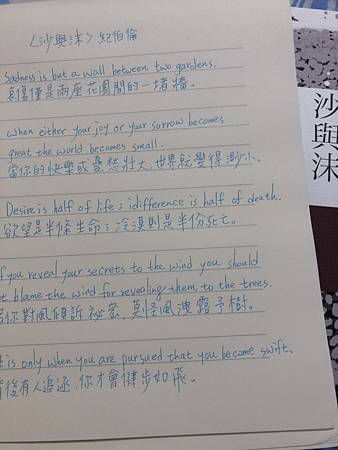 〈沙與沫〉 紀伯倫
Sadness is but a wall between two gardens.
哀傷僅是兩座花園間的一堵牆。
when either your joy or your sorrow becomes
great the world becomes small.
當你的快樂或憂愁壯大,世界就變得渺小。
Desire is half of life ; idifference is half of death.
欲望是半條生命;冷漠則是半份死亡。
f you reveal your secrets to the wind you should
t blame the wind for revealing them to the trees.
若你對風傾訴祕密,莫怪風洩露予樹。
t is only when you are pursued that you become swift.
背後有人追逐,你才會健步如飛。
沙與沫